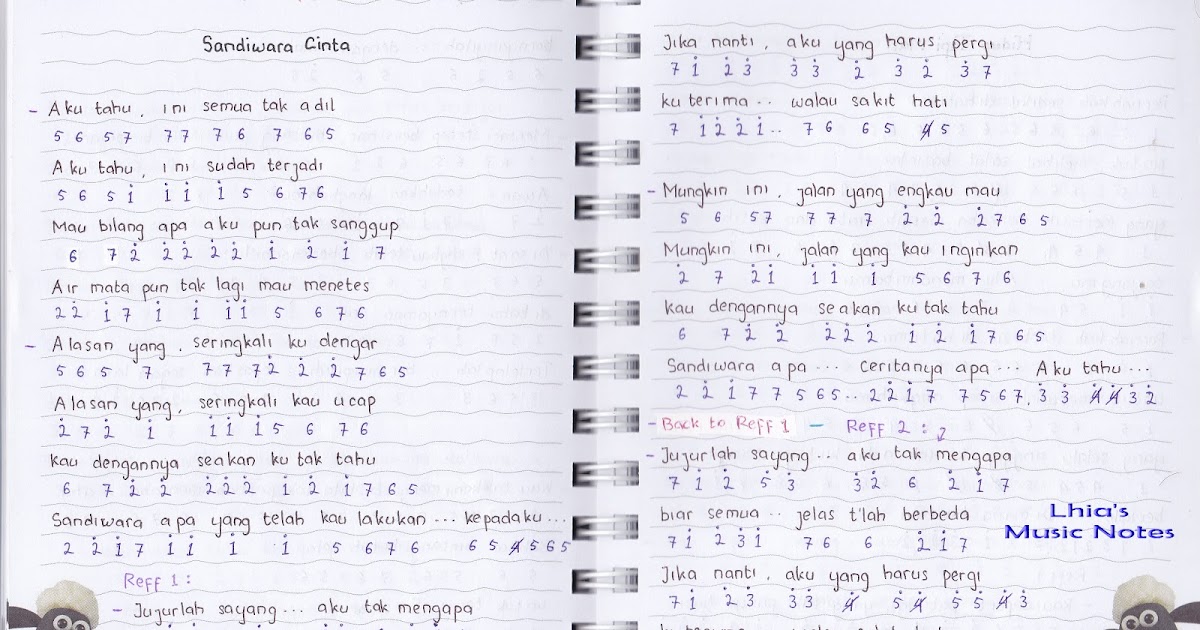 Sandiwara Cinta
- Aku tahu, ini semua tak adil
5 6 5 7 7 7 7 6 7 6 5
Aku tahu, ini sudah terjadi
5 6 5 1̇ 1̇ 1̇ 1̇ 5 6 7 6
Mau bilang apa aku pun tak sanggup
6 7 2̇ 2̇ 2̇ 2̇ 2̇ 1̇ 2̇ 1̇ 7
Air mata pun tak lagi mau menetes
2̇ 2̇ 1̇ 7 1̇ 1̇ 1̇ 1̇ 5 6 7 6
- Alasan yang, seringkali ku dengar
5 6 5 7 7 7 7 2̇ 2̇ 2̇ 7 6 5
Alasan yang, seringkali kau ucap
2̇ 7 2̇ 1̇ 1̇ 1̇ 1̇ 5 6 7 6
kau dengannya seakan ku tak tahu
6 7 2̇ 2̇ 2̇ 2̇ 2̇ 1̇ 2̇ 1̇ 7 6 5
Sandiwara apa yang telah kau lakukan ... kepadaku ...
2 2̇ 1̇ 7 1̇ 1̇ 1̇ 1̇ 5 6 7 6 6 5 4̸ 5 6 5
Reff 1 :
- Jujurlah sayang ... aku tak mengapa
Jika nanti, aku yang harus pergi
7 1̇ 2̇ 3̇ 3̇ 3̇ 2̇ 3̇ 2̇ 3̇ 7
ku terima .. walau sakit hati
7 1̇ 2̇ 2̇ 1̇ .. 7 6 6 5 4̸ 5
- Mungkin ini, jalan yang engkau mau
5 6 5 7 7 7 7 2̇ 2̇ 2̇ 7 6 5
Mungkin ini, jalan yang kau inginkan
2̇ 7 2̇ 1̇ 1̇ 1̇ 1̇ 5 6 7 6
kau dengannya seakan ku tak tahu
6 7 2̇ 2̇ 2̇ 2̇ 2̇ 1̇ 2̇ 1̇ 7 6 5
Sandiwara apa ... Ceritanya apa ... Aku tahu ...
2 2̇ 1̇ 7 7 5 6 5 .. 2̇ 2̇ 1̇ 7 7 5 6 7, 3̇ 3̇ 4̸̇ 4̸̇ 3̇ 2̇
- Back to Reff 1 - Reff 2 :
- Jujurlah sayang ... aku tak mengapa
7 1̇ 2̇ 5̇ 3̇ 3̇ 2̇ 6 2̇ 1̇ 7
biar semua .. jelas t'lah berbeda
7 1̇ 2̇ 3̇ 1̇ 7 6 6 2̇ 1̇ 7
Jika nanti, aku yang harus pergi
7 1̇ 2̇ 3̇ 3̇ 3̇ 4̸̇ 5̇ 4̸̇ 5̇ 5̇ 4̸̇ 3̇
Lhia's
Music Notes